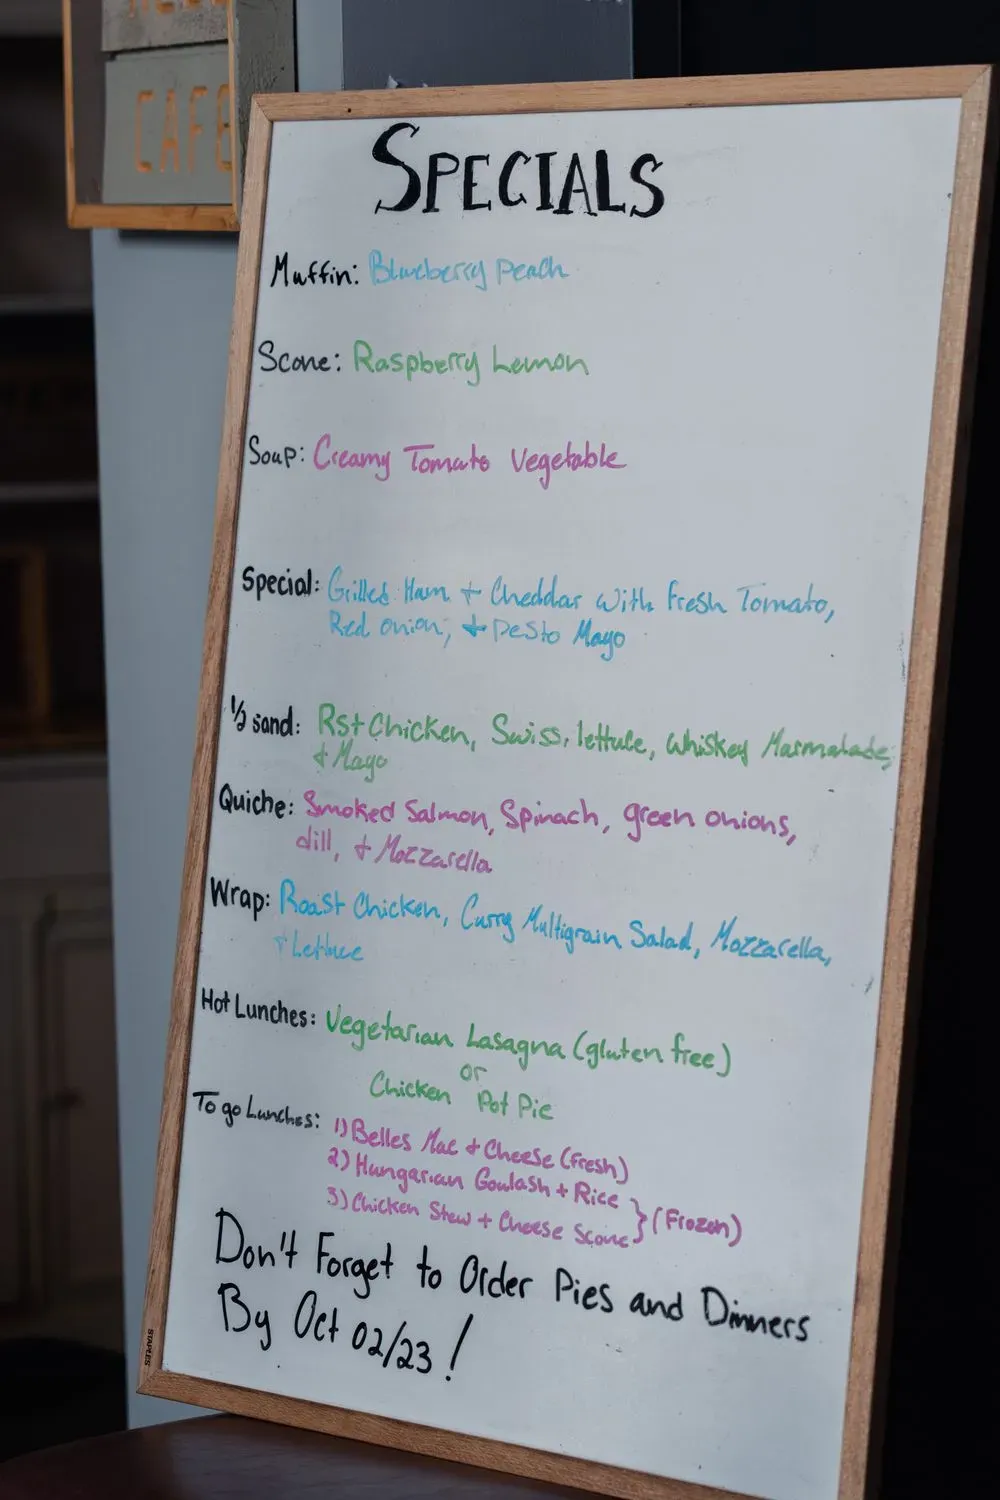 CAFE
SPECIALS
Muffin: Blueberry Peach
Scone: Raspberry Lemon
Soup: Creamy Tomato Vegetable
Special: Grilled Ham + Cheddar with Fresh Tomato,
Red onion, + Pesto Mayo
1/2 sand: Rst Chicken, Swiss, lettuce, Whiskey Marmalade,
+ Mayo
Quiche: Smoked Salmon, Spinach, green onions,
dill, + Mozzarella
Wrap: Roast Chicken, Curry Multigrain Salad, Mozzarella,
+ Lettuce
Hot Lunches: Vegetarian Lasagna (gluten free)
or
Chicken Pot Pie
To go Lunches: 1) Belles Mac + Cheese (Fresh)
2) Hungarian Goulash + Rice
3) Chicken Stew + Cheese Scone } (Frozen)
Don't Forget to Order Pies and Dinners
By Oct 02/23!
STAPLES